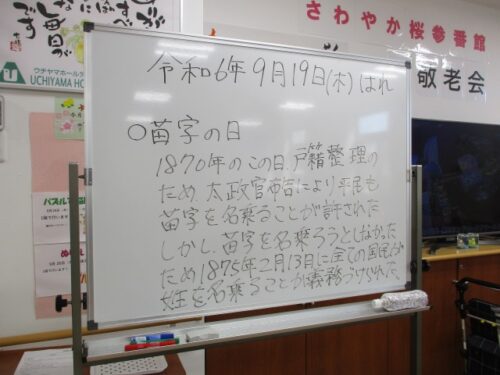 さわやか桜参番館
敬老会
毎日が
です
ウチヤマホールデ
UCHIYAMA HO
令和6年9月19日(木) はれ
○苗字の日
1870年のこの日、戸籍整理の
ため、太政官布告により平民も
苗字を名乗ることが許された
しかし、苗字を名乗ろうとしなかった
ため1875年二月13日に全ての国民が
姓を名乗ることが義務づけられた。
パズル